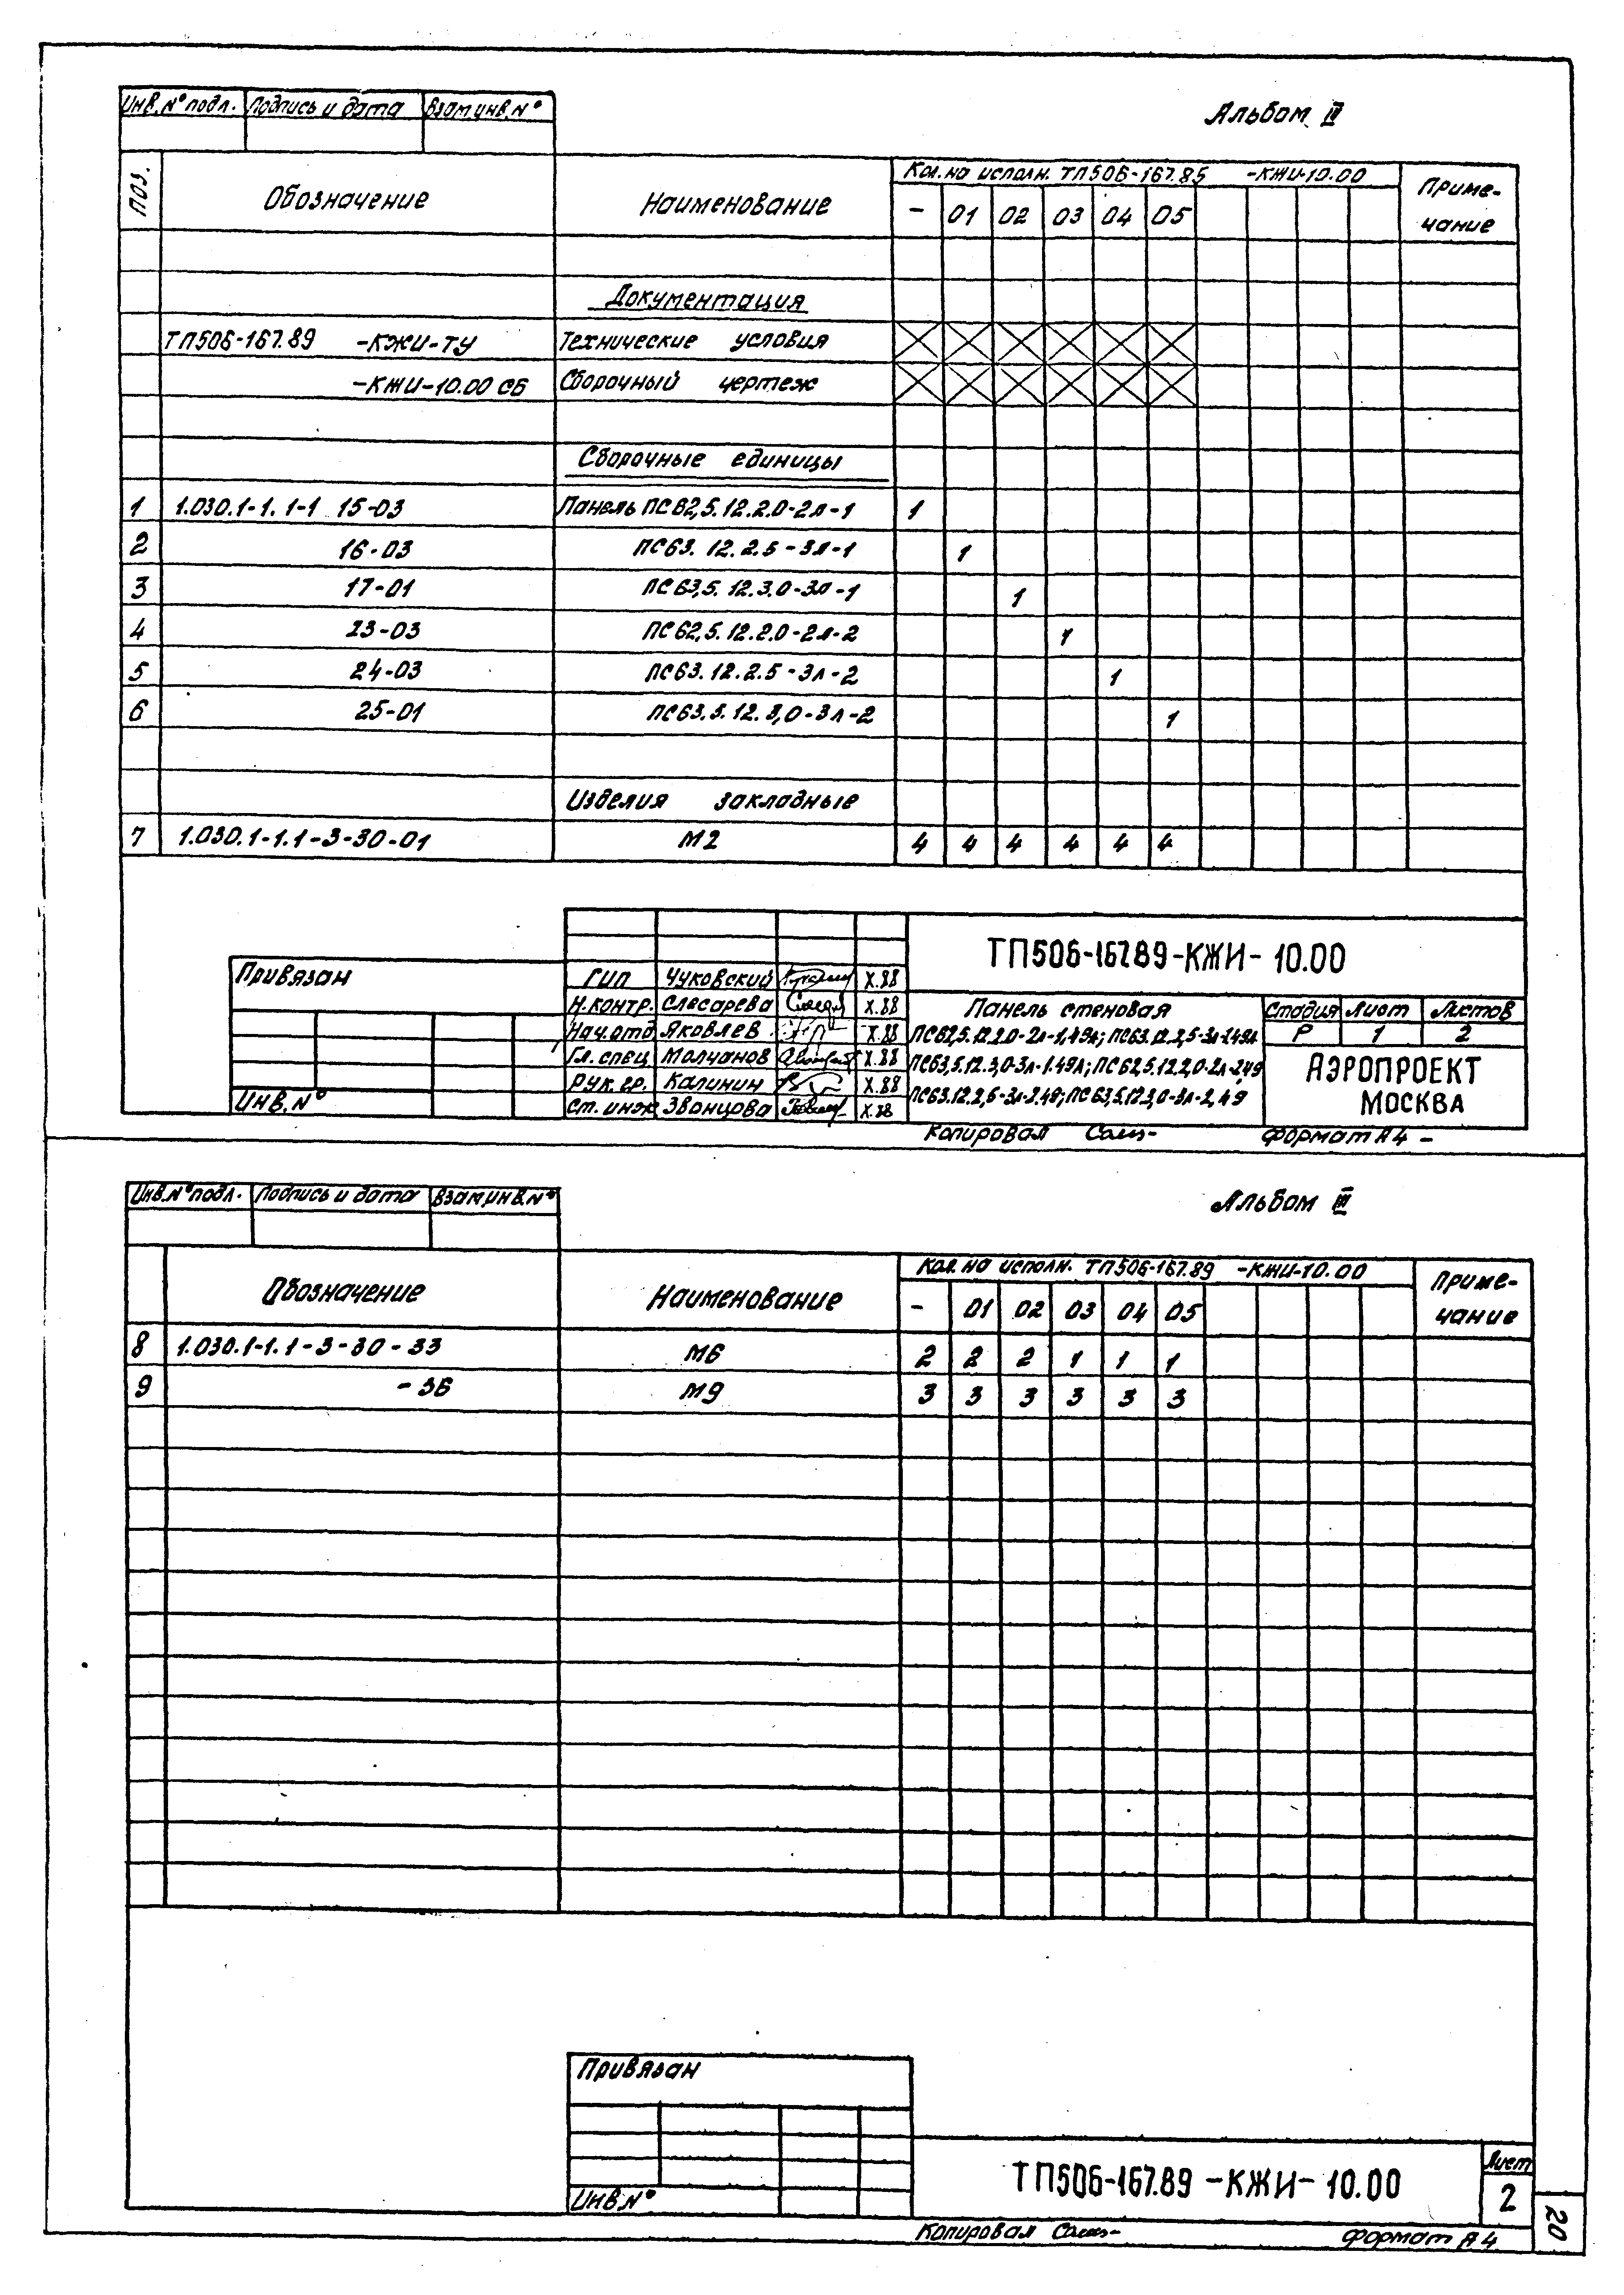 Инв.N°подл. Подпись и дата Взам.инв.N°
Альбом III
Поз. Обозначение Наименование Кол. на исполн. ТП506-167.85 -КЖИ-10.00 Приме-
чание
- 01 02 03 04 05
Документация
ТП506-167.89 -КЖИ-ТУ Технические условия
-КЖИ-10.00 СБ Сборочный чертеж
Сборочные единицы
1 1.030.1-1.1-1 15-03 Панель ПС62,5.12.2.0-2л-1 1
2 16-03 ПС63.12.2.5-3л-1 1
3 17-01 ПС63,5.12.3.0-3л-1 1
4 23-03 ПС62,5.12.2.0-2л-2 1
5 24-03 ПС63.12.2.5-3л-2 1
6 25-01 ПС63.5.12.3,0-3л-2 1
Изделия закладные
7 1.030.1-1.1-3-30-01 М2 4 4 4 4 4 4
ТП506-167.89-КЖИ-10.00
Привязан
ГИП Чуковский X.88
Н.контр. Слесарева X.88
Нач.отд Яковлев X.88
Гл.спец. Молчанов X.88
Рук.гр. Калинин X.88
Ст.инж Звонцова X.88
Инв.N°
Панель стеновая
ПС62,5.12.2.0-2л-1,49л; ПС63.12.2,5-3л-1.49л
ПС63,5.12.3,0-3л-1.49л; ПС62,5.12.2,0-2л-2.49
ПС63.12.2,5-3л-2.49; ПС63,5.12.3,0-3л-2,49
Стадия Лист Листов
Р 1 2
АЭРОПРОЕКТ
МОСКВА
Копировал Формат А4 -
Инв.N°подл. Подпись и дата Взам.инв.N°
Альбом III
Обозначение Наименование Кол. на исполн. ТП506-167.89 -КЖИ-10.00 Приме-
чание
- 01 02 03 04 05
8 1.030.1-1.1-3-30-33 М6 2 2 2 1 1 1
9 -36 М9 3 3 3 3 3 3
Привязан
Инв.N°
ТП506-167.89-КЖИ-10.00
Лист
2
Копировал Формат А4
20